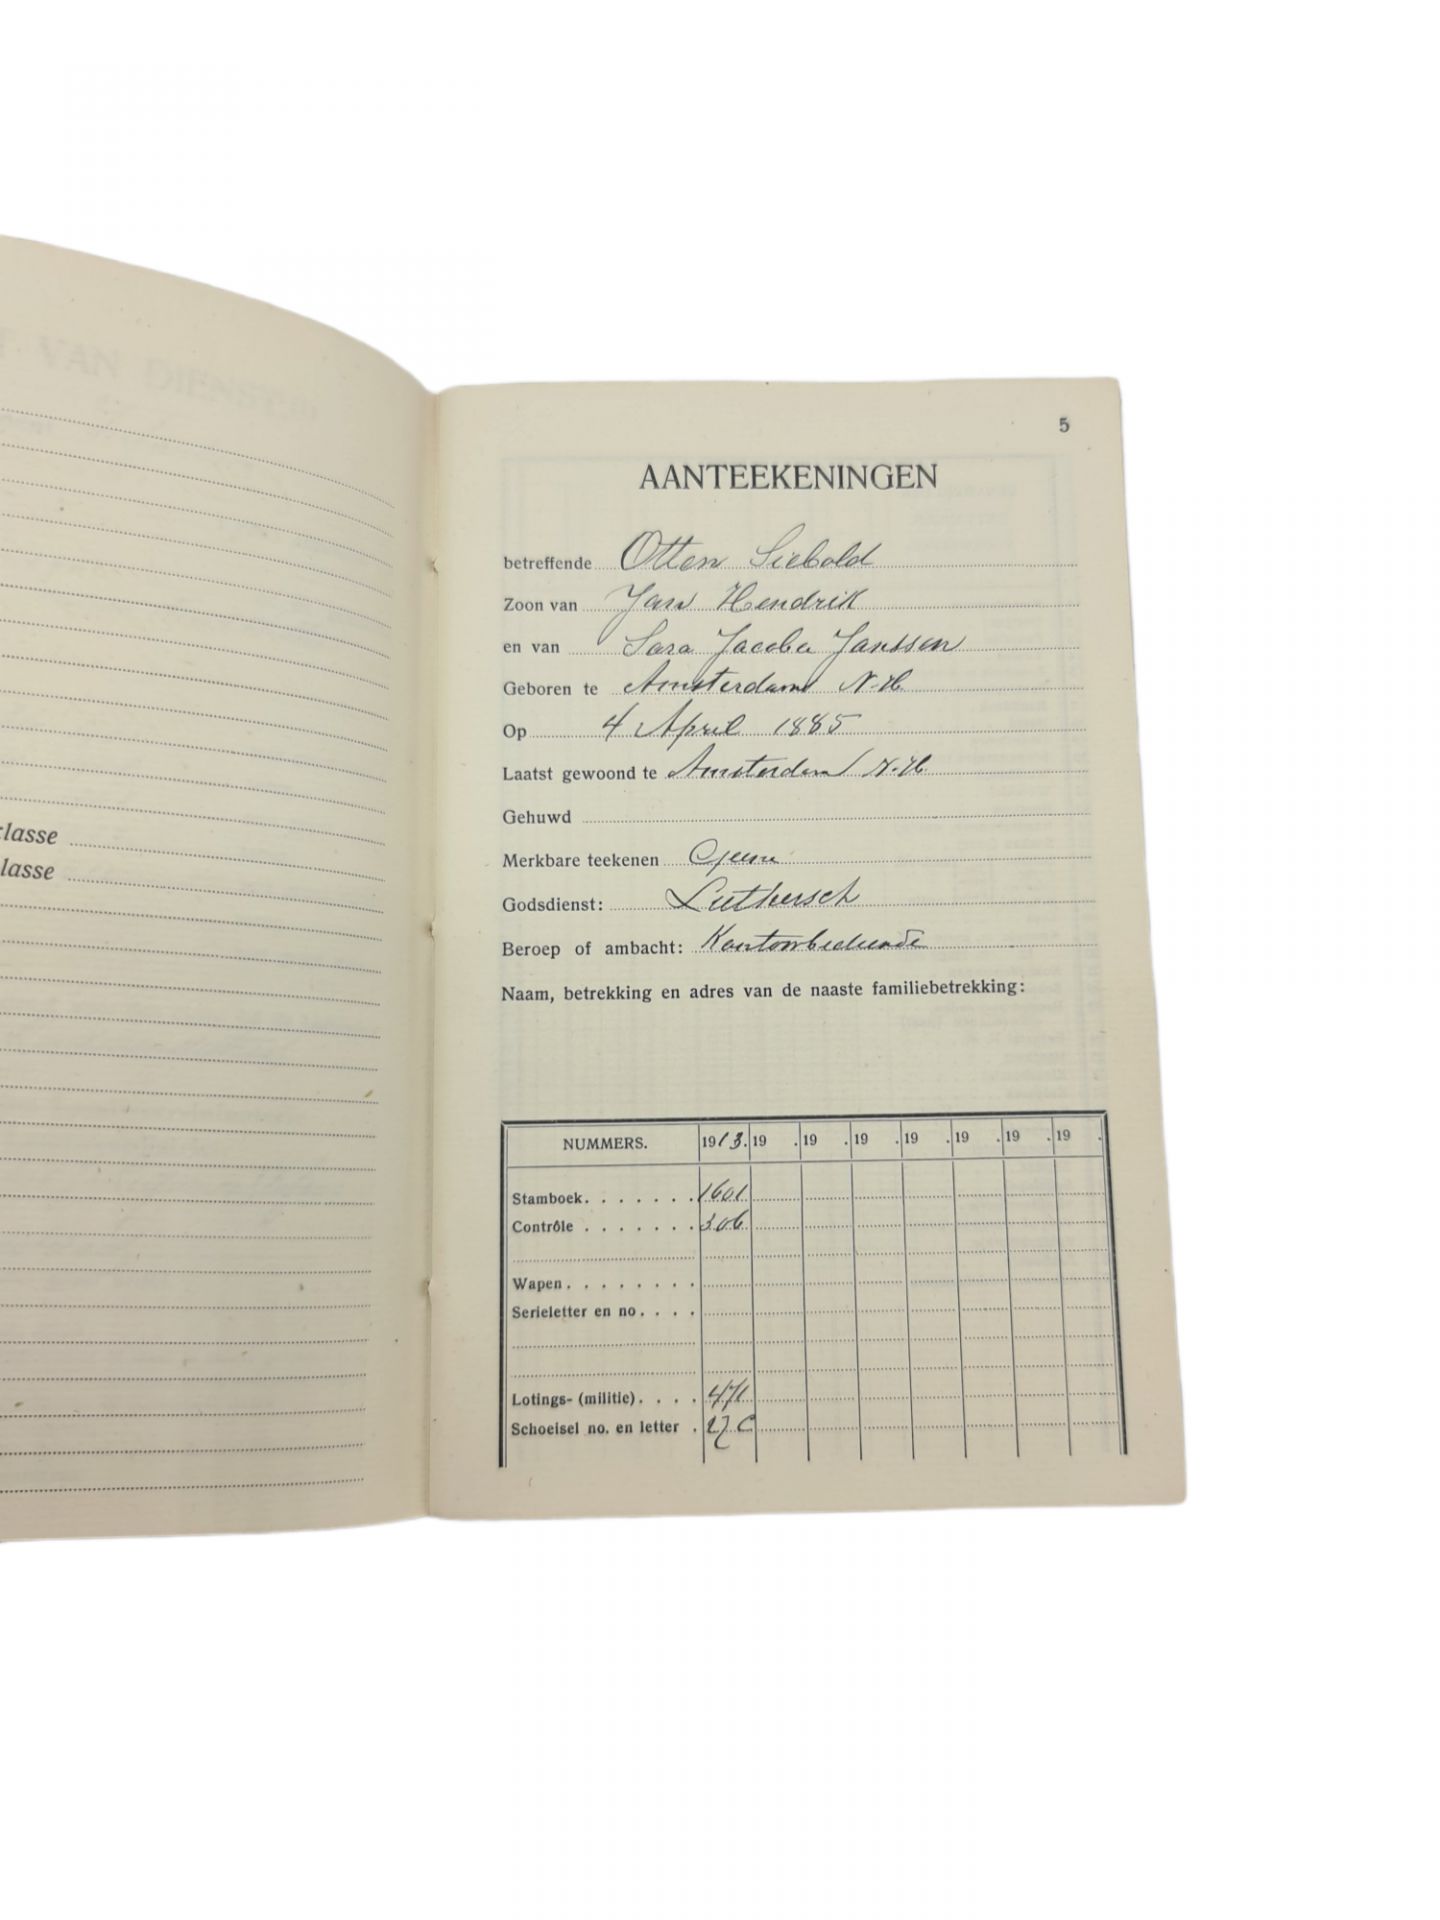 VAN DIENSTTIJD
klasse
klasse
5
AANTEEKENINGEN
betreffende Otten Siebold
Zoon van Jan Hendrik
en van Sara Jacoba Janssen
Geboren te Amsterdam N-H.
Op 4 April 1885
Laatst gewoond te Amsterdam N.H.
Gehuwd
Merkbare teekenen Geene
Godsdienst: Luthersch
Beroep of ambacht: Kantoorbediende
Naam, betrekking en adres van de naaste familiebetrekking:
NUMMERS. 1913. 19 . 19 . 19 . 19 . 19 . 19 . 19 .
Stamboek. . . . . . . 1601
Contrôle . . . . . . . 306
Wapen. . . . . . . .
Serieletter en no. . . .
Lotings- (militie). . . . 471
Schoeisel no. en letter . 27 C